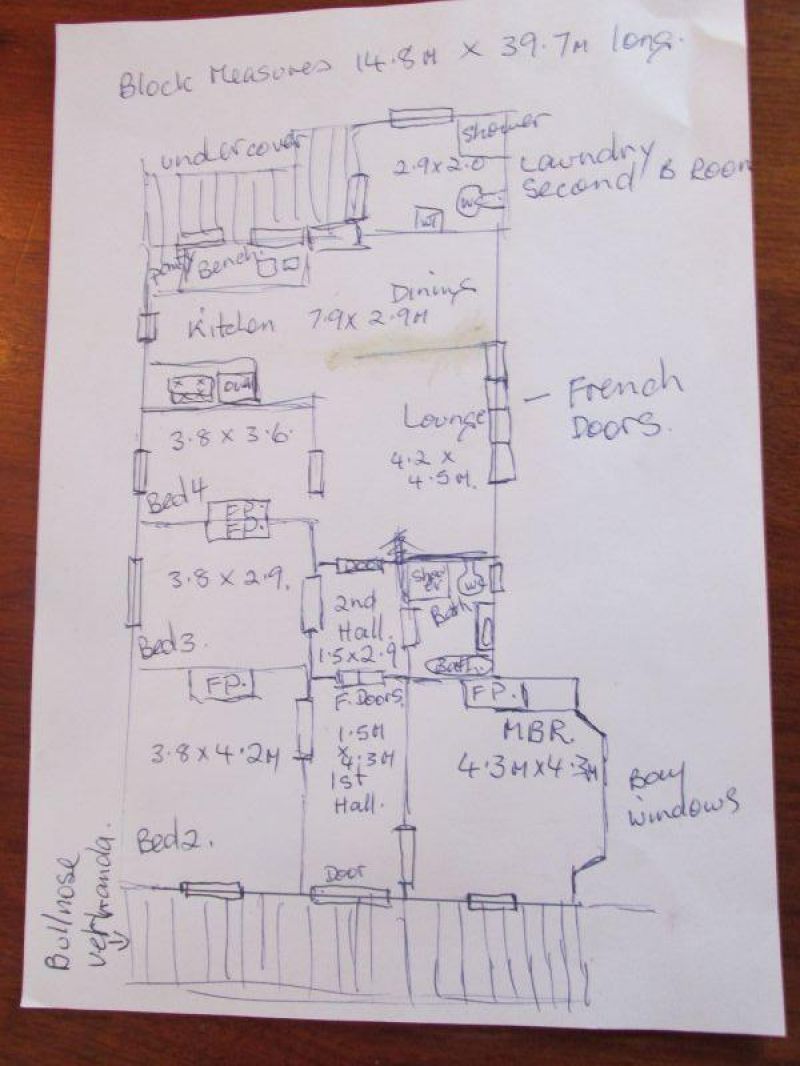 Block Measures 14.8M x 39.7M long.
undercover
shower
2.9x2.0
Laundry
Second B Room
WC
WT
pantry
Bench
Dining
Kitchen 7.9x2.9M
Oven
French
Doors.
Lounge
4.2 x
4.5M.
3.8 x 3.6.
Bed4
F.P.
F.P.
3.8 x 2.9.
Bed3.
Door
2nd
Hall.
1.5x2.9
Show
er
WC
Bath
Bath.
F.P.
F.P.
F. Doors.
1.5M
x
4.3M
1st
Hall.
MBR.
4.3Mx4.3M
3.8x4.2M
Bay
windows
Bed2.
Door
Bullnose
verhranda.